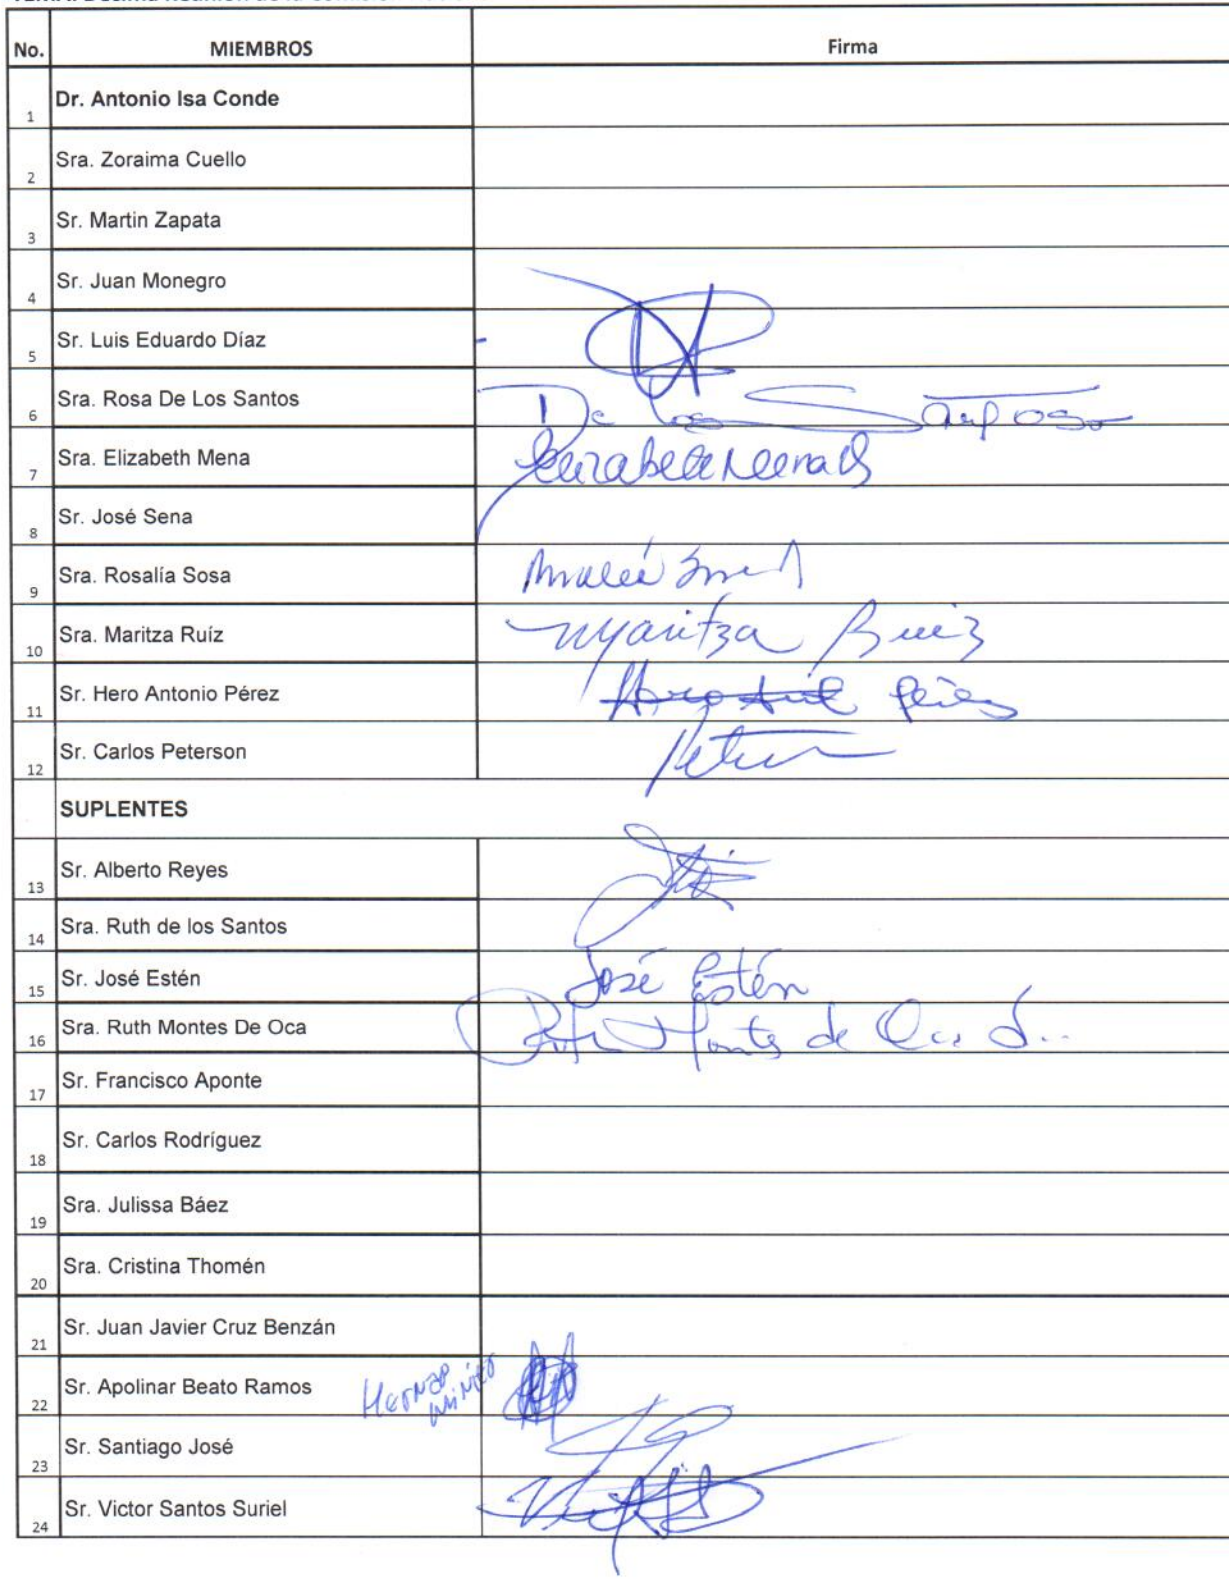 No. MIEMBROS Firma
1 Dr. Antonio Isa Conde
2 Sra. Zoraima Cuello
3 Sr. Martin Zapata
4 Sr. Juan Monegro
5 Sr. Luis Eduardo Díaz
6 Sra. Rosa De Los Santos De Los Santos
7 Sra. Elizabeth Mena
8 Sr. José Sena
9 Sra. Rosalía Sosa
10 Sra. Maritza Ruíz Maritza Ruiz
11 Sr. Hero Antonio Pérez Pérez
12 Sr. Carlos Peterson
SUPLENTES
13 Sr. Alberto Reyes
14 Sra. Ruth de los Santos
15 Sr. José Estén José Estén
16 Sra. Ruth Montes De Oca Ruth Montes de Oca
17 Sr. Francisco Aponte
18 Sr. Carlos Rodríguez
19 Sra. Julissa Báez
20 Sra. Cristina Thomén
21 Sr. Juan Javier Cruz Benzán
22 Sr. Apolinar Beato Ramos
23 Sr. Santiago José
24 Sr. Victor Santos Suriel